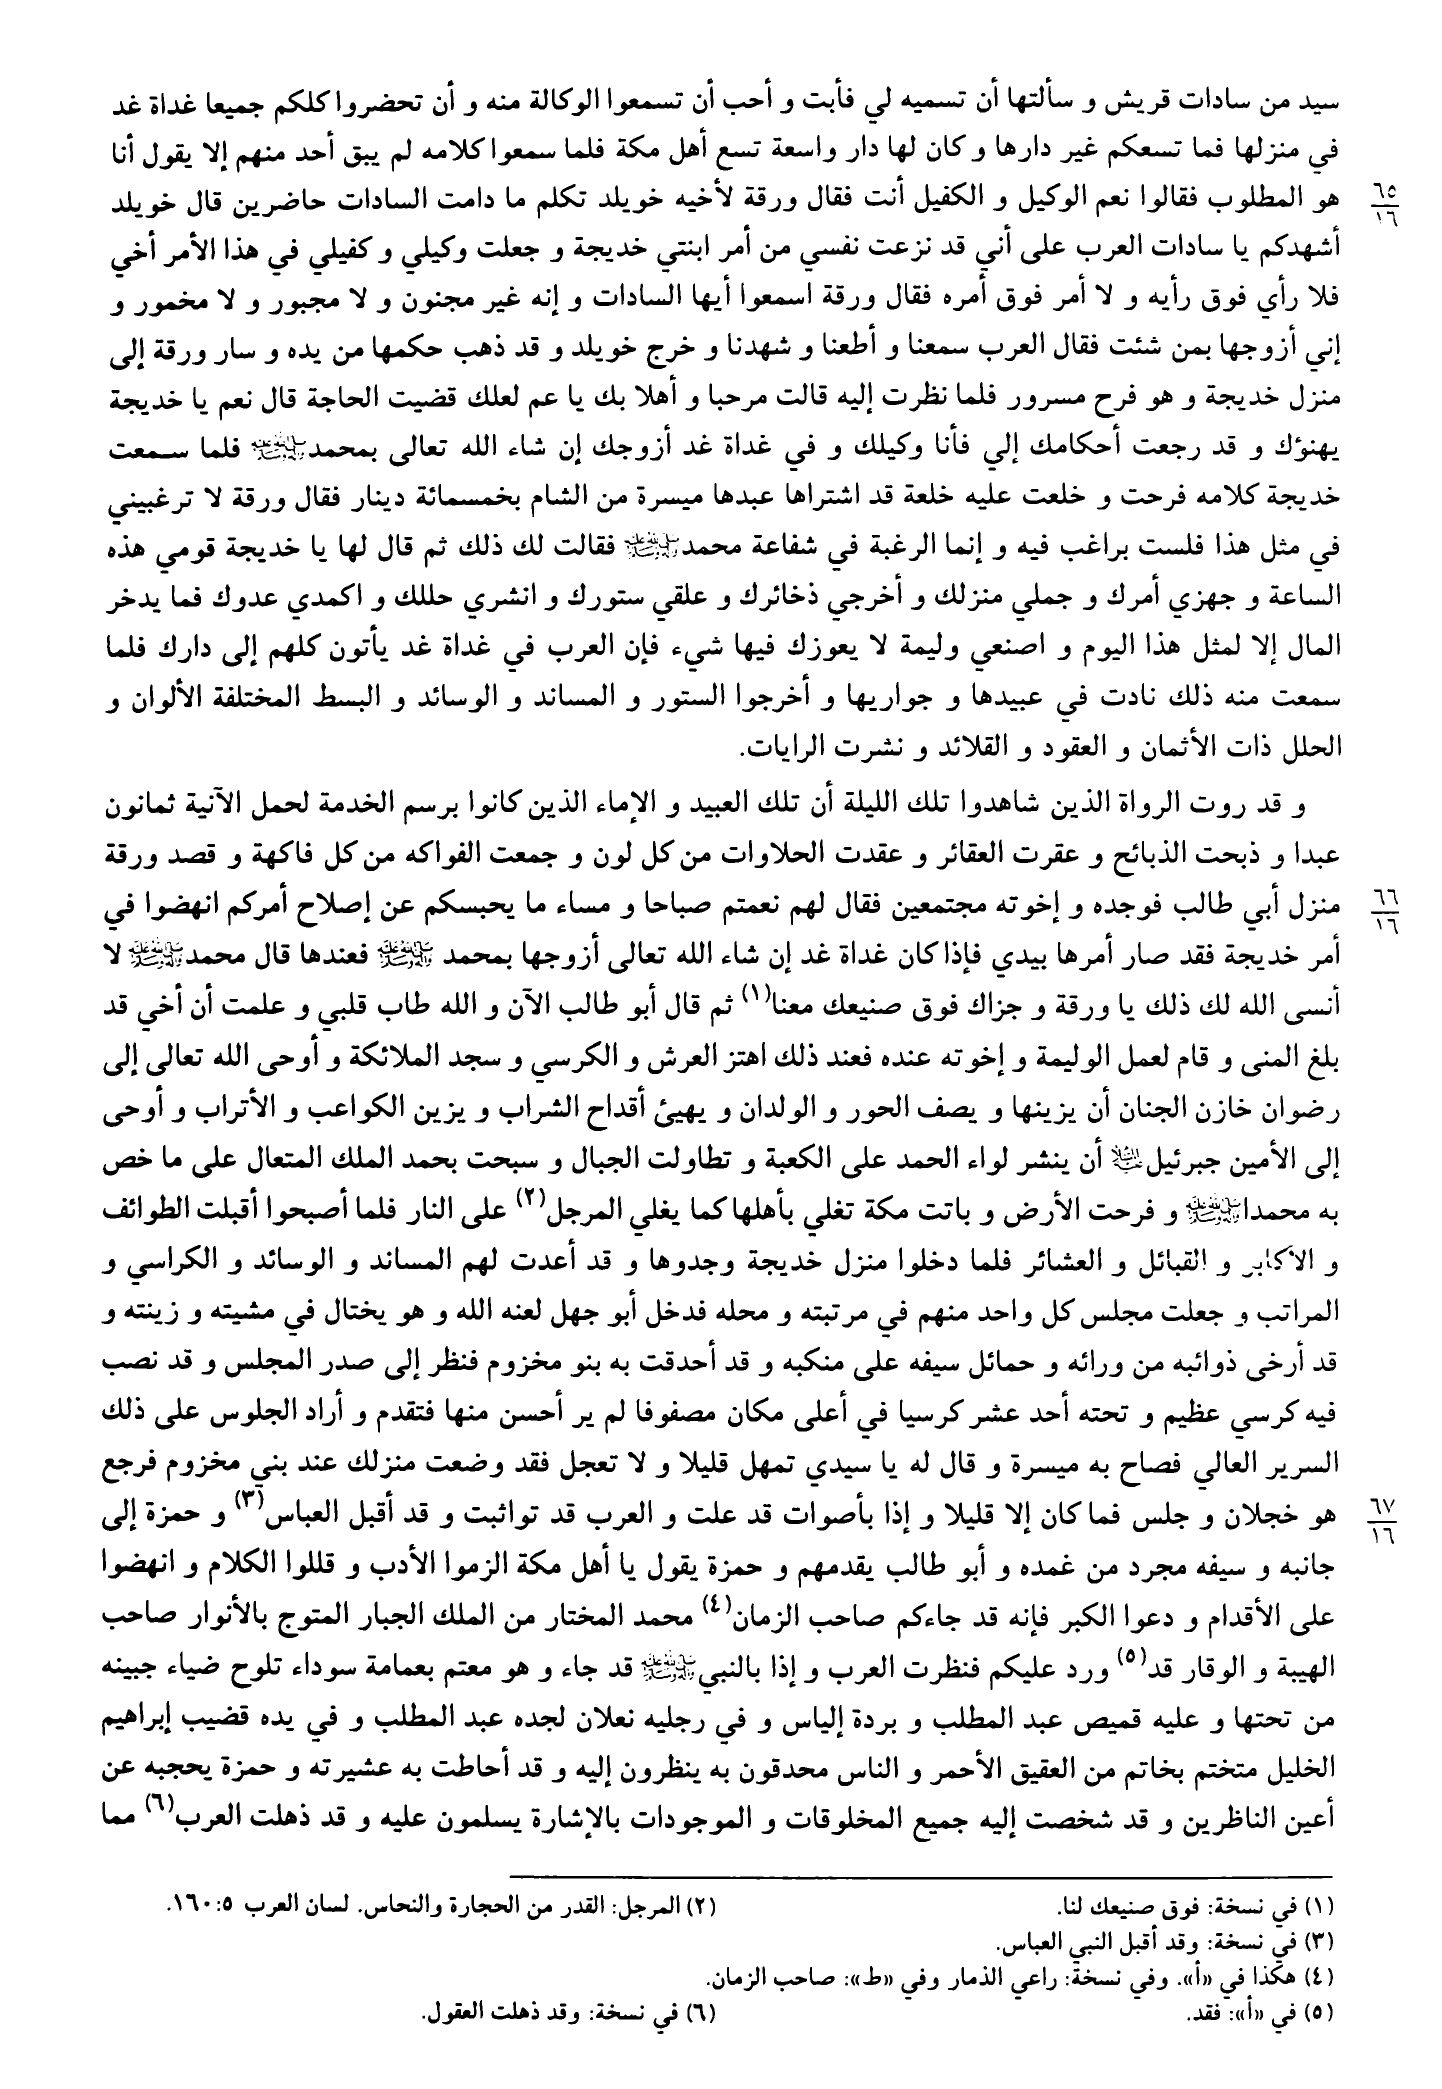 سيد من سادات قريش و سألتها أن تسميه لي فأبت و أحب أن تسمعوا الوكالة منه و أن تحضروا كلكم جميعا غداة غد
في منزلها فما تسعكم غير دارها و كان لها دار واسعة تسع أهل مكة فلما سمعوا كلامه لم يبق أحد منهم إلا يقول أنا
هو المطلوب فقالوا نعم الوكيل و الكفيل أنت فقال ورقة لأخيه خويلد تكلم ما دامت السادات حاضرين قال خويلد
٦٥
١٦
أشهدكم يا سادات العرب على أني قد نزعت نفسي من أمر ابنتي خديجة و جعلت وكيلي و كفيلي في هذا الأمر أخي
فلا رأي فوق رأيه و لا أمر فوق أمره فقال ورقة اسمعوا أيها السادات و إنه غير مجنون و لا مجبور و لا مخمور و
إني أزوجها بمن شئت فقال العرب سمعنا و أطعنا و شهدنا و خرج خويلد و قد ذهب حكمها من يده و سار ورقة إلى
منزل خديجة و هو فرح مسرور فلما نظرت إليه قالت مرحبا و أهلا بك يا عم لعلك قضيت الحاجة قال نعم يا خديجة
يهنؤك و قد رجعت أحكامك إلي فأنا وكيلك و في غداة غد أزوجك إن شاء الله تعالى بمحمدﷺ فلما سمعت
خديجة كلامه فرحت و خلعت عليه خلعة قد اشتراها عبدها ميسرة من الشام بخمسمائة دينار فقال ورقة لا ترغبيني
في مثل هذا فلست براغب فيه و إنما الرغبة في شفاعة محمدﷺ فقالت لك ذلك ثم قال لها يا خديجة قومي هذه
الساعة و جهزي أمرك و جملي منزلك و أخرجي ذخائرك و علقي ستورك و انشري حللك و اكمدي عدوك فما يدخر
المال إلا لمثل هذا اليوم و اصنعي وليمة لا يعوزك فيها شيء فإن العرب في غداة غد يأتون كلهم إلى دارك فلما
سمعت منه ذلك نادت في عبيدها و جواريها و أخرجوا الستور و المساند و الوسائد و البسط المختلفة الألوان و
الحلل ذات الأثمان و العقود و القلائد و نشرت الرايات.
و قد روت الرواة الذين شاهدوا تلك الليلة أن تلك العبيد و الإماء الذين كانوا برسم الخدمة لحمل الآنية ثمانون
عبدا و ذبحت الذبائح و عقرت العقائر و عقدت الحلاوات من كل لون و جمعت الفواكه من كل فاكهة و قصد ورقة
منزل أبي طالب فوجده و إخوته مجتمعين فقال لهم نعمتم صباحا و مساء ما يحبسكم عن إصلاح أمركم انهضوا في
٦٦
١٦
أمر خديجة فقد صار أمرها بيدي فإذا كان غداة غد إن شاء الله تعالى أزوجها بمحمد ﷺ فعندها قال محمدﷺ لا
أنسى الله لك ذلك يا ورقة و جزاك فوق صنيعك معنا(١) ثم قال أبو طالب الآن و الله طاب قلبي و علمت أن أخي قد
بلغ المنى و قام لعمل الوليمة و إخوته عنده فعند ذلك اهتز العرش و الكرسي و سجد الملائكة و أوحى الله تعالى إلى
رضوان خازن الجنان أن يزينها و يصف الحور و الولدان و يهيئ أقداح الشراب و يزين الكواعب و الأتراب و أوحى
إلى الأمين جبرئيلعليه السلام أن ينشر لواء الحمد على الكعبة و تطاولت الجبال و سبحت بحمد الملك المتعال على ما خص
به محمداﷺ و فرحت الأرض و باتت مكة تغلي بأهلها كما يغلي المرجل(٢) على النار فلما أصبحوا أقبلت الطوائف
و الأكابر و القبائل و العشائر فلما دخلوا منزل خديجة وجدوها و قد أعدت لهم المساند و الوسائد و الكراسي و
المراتب و جعلت مجلس كل واحد منهم في مرتبته و محله فدخل أبو جهل لعنه الله و هو يختال في مشيته و زينته و
قد أرخى ذوائبه من ورائه و حمائل سيفه على منكبه و قد أحدقت به بنو مخزوم فنظر إلى صدر المجلس و قد نصب
فيه كرسي عظيم و تحته أحد عشر كرسيا في أعلى مكان مصفوفا لم ير أحسن منها فتقدم و أراد الجلوس على ذلك
السرير العالي فصاح به ميسرة و قال له يا سيدي تمهل قليلا و لا تعجل فقد وضعت منزلك عند بني مخزوم فرجع
هو خجلان و جلس فما كان إلا قليلا و إذا بأصوات قد علت و العرب قد تواثبت و قد أقبل العباس(٣) و حمزة إلى
٦٧
١٦
جانبه و سيفه مجرد من غمده و أبو طالب يقدمهم و حمزة يقول يا أهل مكة الزموا الأدب و قللوا الكلام و انهضوا
على الأقدام و دعوا الكبر فإنه قد جاءكم صاحب الزمان(٤) محمد المختار من الملك الجبار المتوج بالأنوار صاحب
الهيبة و الوقار قد(٥) ورد عليكم فنظرت العرب و إذا بالنبيﷺ قد جاء و هو معتم بعمامة سوداء تلوح ضياء جبينه
من تحتها و عليه قميص عبد المطلب و بردة إلياس و في رجليه نعلان لجده عبد المطلب و في يده قضيب إبراهيم
الخليل متختم بخاتم من العقيق الأحمر و الناس محدقون به ينظرون إليه و قد أحاطت به عشيرته و حمزة يحجبه عن
أعين الناظرين و قد شخصت إليه جميع المخلوقات و الموجودات بالإشارة يسلمون عليه و قد ذهلت العرب(٦) مما
(١) في نسخة: فوق صنيعك لنا.
(٢) المرجل: القدر من الحجارة والنحاس. لسان العرب ٥:١٦٠.
(٣) في نسخة: وقد أقبل النبي العباس.
(٤) هكذا في «أ». وفي نسخة: راعي الذمار وفي «ط»: صاحب الزمان.
(٥) في «أ»: فقد.
(٦) في نسخة: وقد ذهلت العقول.